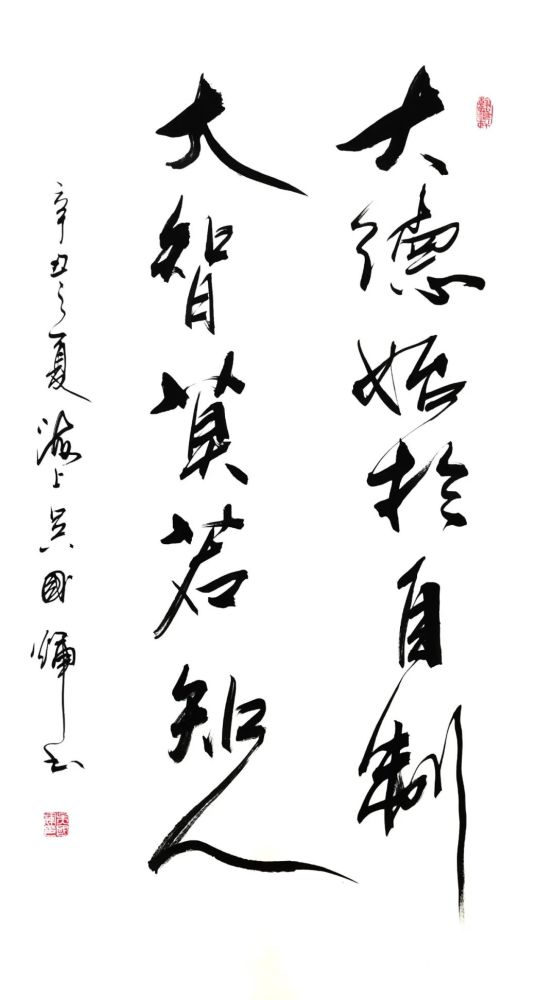 大德始於自制
大智莫若知人
辛丑之夏海上吴國辉书